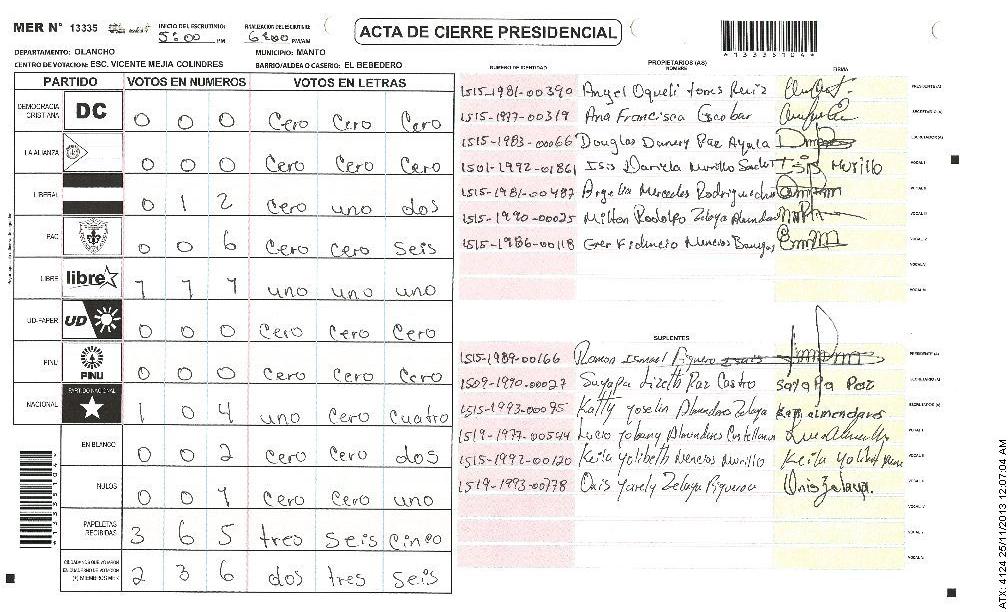 MER N° 13335 INICIO DEL ESCRUTINIO: 5:00 PM FINALIZACION DEL ESCRUTINIO 6:00 PM/AM
ACTA DE CIERRE PRESIDENCIAL
DEPARTAMENTO: OLANCHO MUNICIPIO: MANTO
CENTRO DE VOTACION: ESC. VICENTE MEJIA COLINDRES BARRIO/ALDEA O CASERIO: EL BEBEDERO
PARTIDO VOTOS EN NUMEROS VOTOS EN LETRAS
DEMOCRACIA CRISTIANA DC 0 0 0 Cero Cero Cero
LA ALIANZA 0 0 0 Cero Cero Cero
LIBERAL 0 1 2 Cero uno dos
PAC 0 0 6 Cero Cero Seis
LIBRE libre 1 1 1 uno uno uno
UD-FAPER UD 0 0 0 Cero Cero Cero
PINU PINU 0 0 0 Cero Cero Cero
NACIONAL PARTIDO NACIONAL 1 0 4 uno Cero Cuatro
EN BLANCO 0 0 2 Cero Cero dos
NULOS 0 0 1 Cero Cero uno
PAPELETAS RECIBIDAS 3 6 5 tres Seis Cinco
CIUDADANOS QUE VOTARON EN CUADERNO DE VOTACION (+) MIEMBROS MER 2 3 6 dos tres Seis
NUMERO DE IDENTIDAD PROPIETARIOS (AS) NOMBRE FIRMA
1515-1981-00390 Angel Oqueli Torres Ruiz PRESIDENTE (A)
1515-1977-00319 Ana Francisca Escobar SECRETARIO (A)
1515-1983-00066 Douglas Danery Paz Ayala ESCRUTADOR (A)
1501-1992-01861 Isis Daniela Murillo Isis Murillo VOCAL I
1515-1981-00487 Argelia Mercedes VOCAL II
1515-1990-00025 Milton Rodolfo Zelaya Almendares VOCAL III
1515-1986-00118 Mencios VOCAL IV
VOCAL V
VOCAL VI
SUPLENTES
1515-1989-00166 Ramon Ismael PRESIDENTE (A)
1509-1990-00027 Suyapa Lizeth Paz Castro Suyapa Paz SECRETARIO (A)
1515-1993-00095 Katty Yoselin Almendares Zelaya Katy almendares ESCRUTADOR (A)
1519-1977-00544 Lucio Yobany Almendares Castellanos VOCAL I
1515-1992-00120 Keila Yolibeth Mencios Murillo Keila Yolibeth VOCAL II
1519-1993-00778 Onis Yarely Zelaya Figueroa Onis Zelaya. VOCAL III
VOCAL IV
VOCAL V
ATX: 4124 25/11/2013 12:07:04 AM